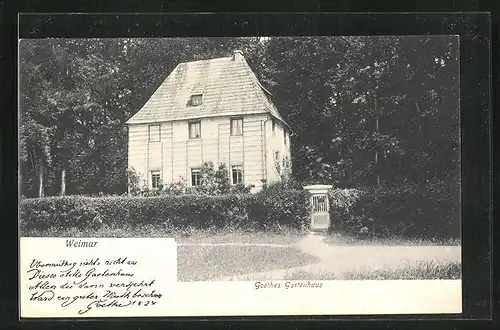 Weimar
Goethes Gartenhaus
Übermüthig sieht's nicht aus
Dieses stille Gartenhaus
Allen die darin verkehrt
Ward ein guter Muth bescheert
Goethe